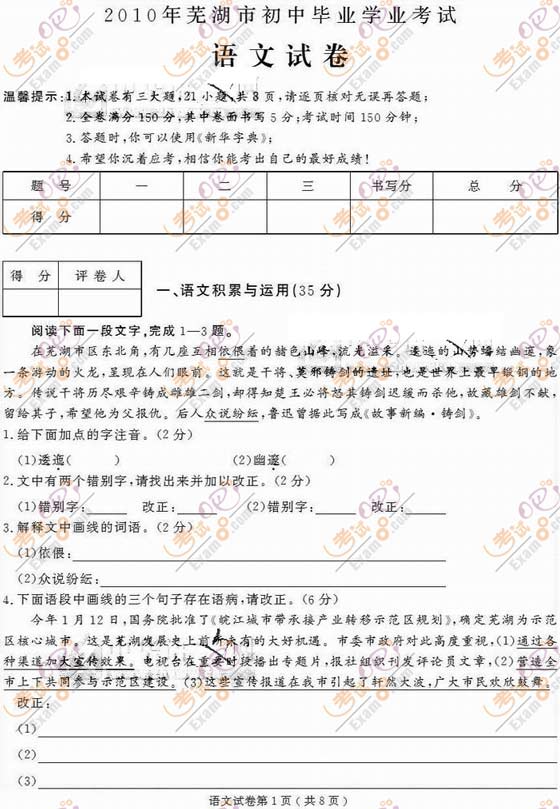 2010年芜湖市初中毕业学业考试
语文试卷
温馨提示:1.本试卷有三大题,21小题,共8页,请逐页核对无误再答题;
2.全卷满分150分,其中卷面书写5分;考试时间150分钟;
3.答题时,你可以使用《新华字典》;
4.希望你沉着应考,相信你能考出自己的最好成绩!
题 号 一 二 三 书写分 总 分
得 分
得 分 评卷人
一、语文积累与运用(35分)
阅读下面一段文字,完成1—3题。
在芜湖市区东北角,有几座互相依偎着的赭色山峰,流光溢采。逶迤的山势蟠结幽邃,象
一条游动的火龙,呈现在人们眼前。这就是干将、莫邪铸剑的遗址,也是世界上最早锻钢的地
方。传说干将历尽艰辛铸成雄雄二剑,却得知楚王必将怒其铸剑迟缓而杀他,故藏雄剑不献,
留给其子,希望他为父报仇。后人众说纷纭,鲁迅曾据此写成《故事新编·铸剑》。
1.给下面加点的字注音。(2分)
(1)逶迤( ) (2)幽邃( )
2.文中有两个错别字,请找出来并加以改正。(2分)
(1)错别字: 改正: (2)错别字: 改正:
3.解释文中画线的词语。(2分)
(1)依偎:
(2)众说纷纭:
4.下面语段中画线的三个句子存在语病,请改正。(6分)
今年1月12日,国务院批准了《皖江城市带承接产业转移示范区规划》,确定芜湖为示范
区核心城市。这是芜湖发展史上前所未有的大好机遇。市委市政府对此高度重视,(1)通过各
种渠道加大宣传效果。电视台在重要时段播出专题片,报社组织刊发评论员文章,(2)营造全
市上下共同参与示范区建设。(3)这些宣传报道在我市引起了轩然大波,广大市民欢欣鼓舞。
改正:
(1)
(2)
(3)
语文试卷第1页(共8页)
考试 Exam8.com